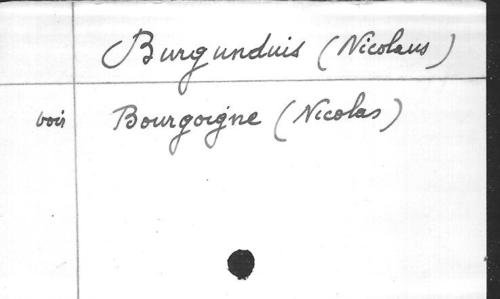 Burgundius (Nicolaus)
voir Bourgoigne (Nicolas)